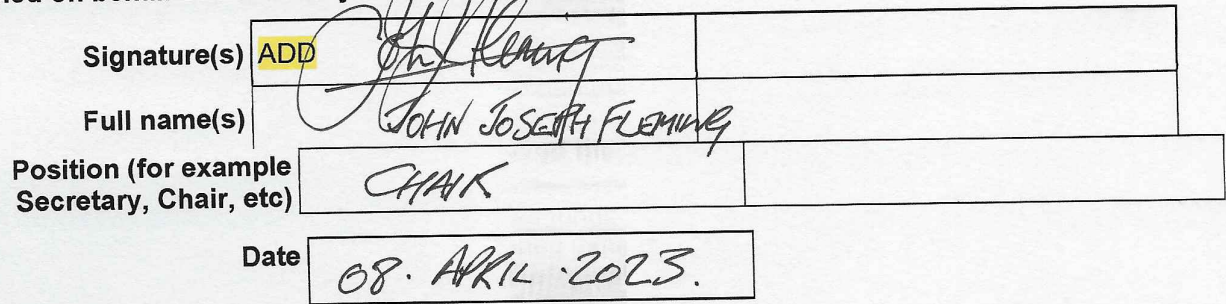 Signature(s) ADD John J Fleming
Full name(s) JOHN JOSEPH FLEMING
Position (for example
Secretary, Chair, etc) CHAIR
Date 08. APRIL .2023.